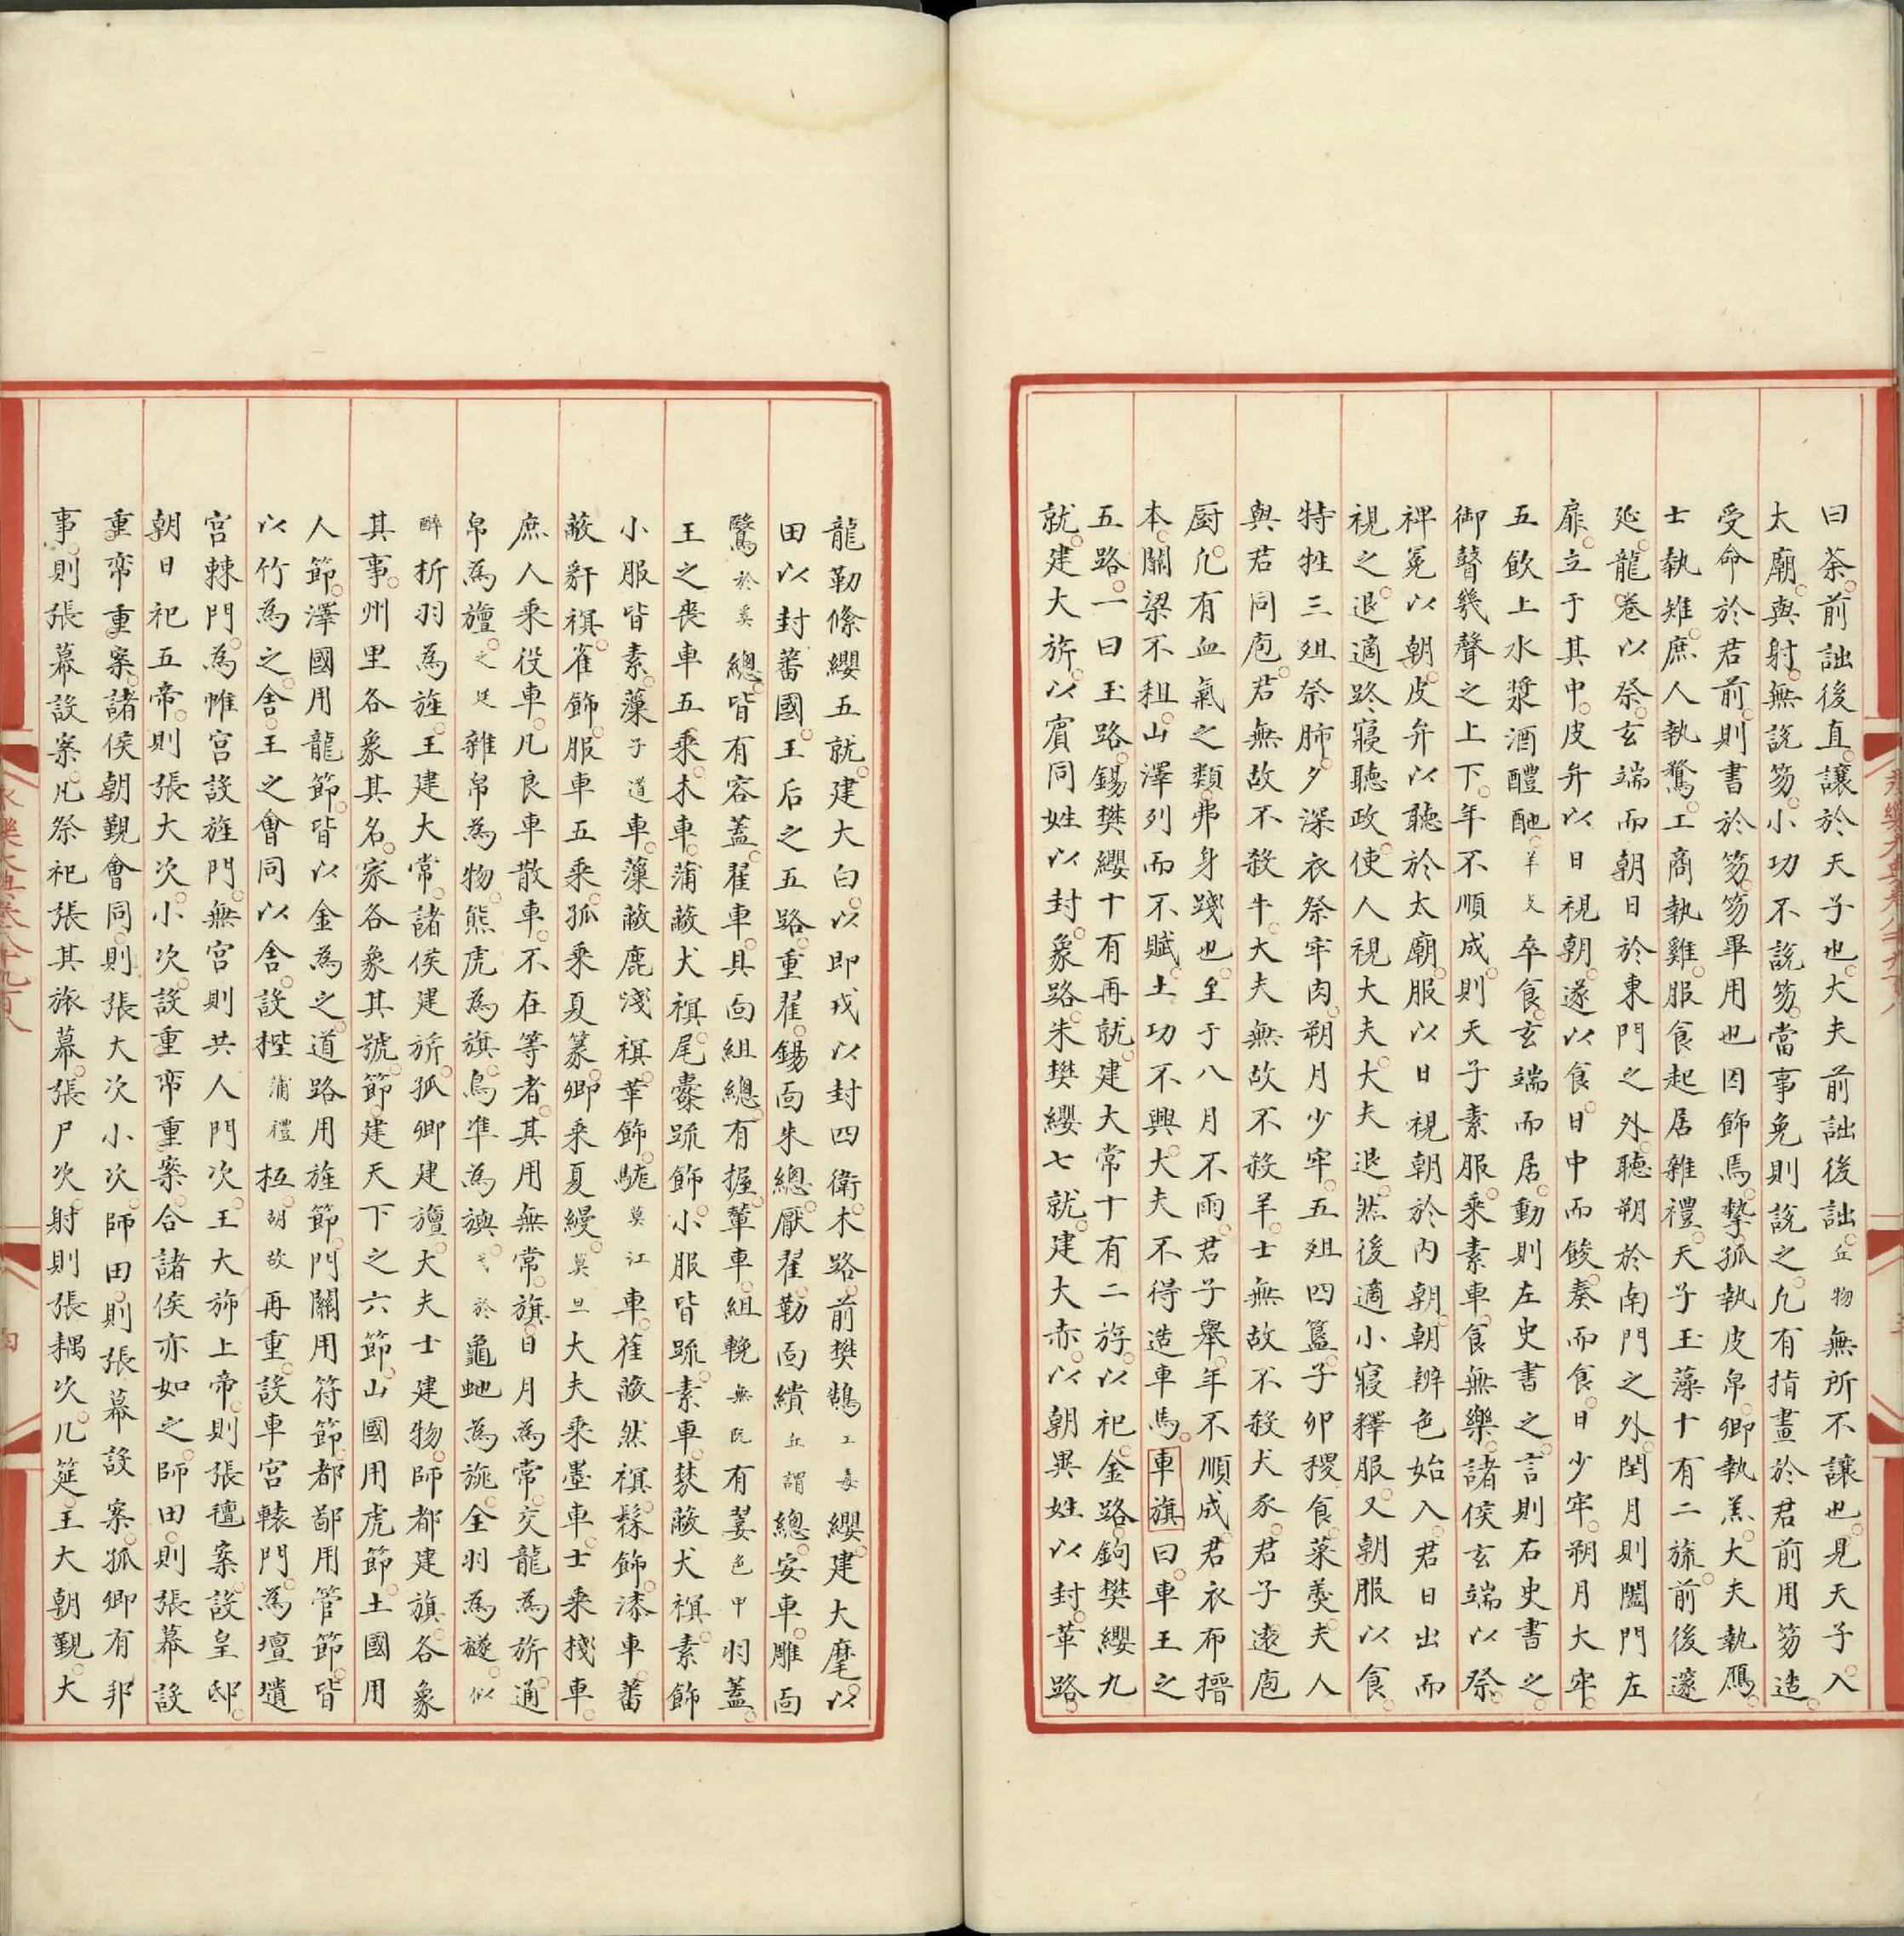 曰荼前詘後直讓於天子也大夫前詘後詘丘物無所不讓也見天子入
太廟與射無說笏小功不說笏當事免則說之凢有指畫於君前用笏造
受命於君前則書於笏笏畢用也因飾焉摯孤執皮帛卿執羔大夫執鴈
士執雉庶人執騖工商執雞服食起居雜禮天子玉藻十有二旒前後邃
延龍卷以祭玄端而朝日於東門之外聽朔於南門之外閏月則闔門左
扉立于其中皮弁以日視朝遂以食日中而餕奏而食日少牢朔月大牢
五飲上水漿酒醴酏羊支卒食玄端而居動則左史書之言則右史書之
御瞽幾聲之上下年不順成則天子素服乘素車食無樂諸侯玄端以祭
裨冕以朝皮弁以聽於太廟服以日視朝於內朝朝辨色始入君日出而
視之退適路寢聽政使人視大夫大夫退然後適小寢釋服又朝服以食
特牲三俎祭肺夕深衣祭牢肉朔月少牢五俎四簋子卯稷食菜羮夫人
與君同庖君無故不殺牛大夫無故不殺羊士無故不殺犬豕君子遠庖
厨凢有血氣之類弗身踐也至于八月不雨君子舉年不順成君衣布搢
本關梁不租山澤列而不賦土功不興大夫不得造車馬車旗曰車王之
五路一曰玉路錫樊纓十有再就建大常十有二斿以祀金路鉤樊纓九
就建大旂以賓同姓以封象路朱樊纓七就建大赤以朝異姓以封革路
龍勒絛纓五就建大白以即戎以封四衛木路前樊鵠工毒纓建大麾以
田以封蕃國王后之五路重翟錫靣朱總厭翟勒靣繢丘謂總安車雕靣
鷖於奚總皆有容蓋翟車具靣組總有握輦車組輓無阮有翣色甲羽蓋
王之喪車五乘木車蒲蔽犬𧜀尾櫜䟽飾小服皆䟽素車棼蔽犬𧜀素飾
小服皆素藻子道車藻蔽鹿淺𧜀革飾駹莫江車雚蔽然𧜀髹飾漆車蕃
蔽豻𧜀雀飾服車五乘孤乘夏篆卿乘夏縵莫旦大夫乘墨車士乘棧車
庶人乘役車凢良車散車不在等者其用無常旗日月為常交龍為旂通
帛為旜之延雜帛為物熊虎為旗鳥隼為旟弋於龜虵為旐全羽為旞似
醉析羽為旌王建大常諸侯建旂孤卿建旜大夫士建物師都建旗各象
其事州里各象其名家各象其號節建天下之六節山國用虎節土國用
人節澤國用龍節皆以金為之道路用旌節門關用符節都鄙用管節皆
以竹為之舎王之會同以舎設梐蒲禮枑胡故再重設車宮轅門為壇壝
宮棘門為帷宮設旌門無宮則共人門次王大旅上帝則張氊案設皇邸
朝日祀五帝則張大次小次設重帟重案合諸侯亦如之師田則張幕設
重帟重案諸侯朝覲會同則張大次小次師田則張幕設案孤卿有邦
事則張幕設案凢祭祀張其旅幕張尸次射則張耦次几筵王大朝覲大